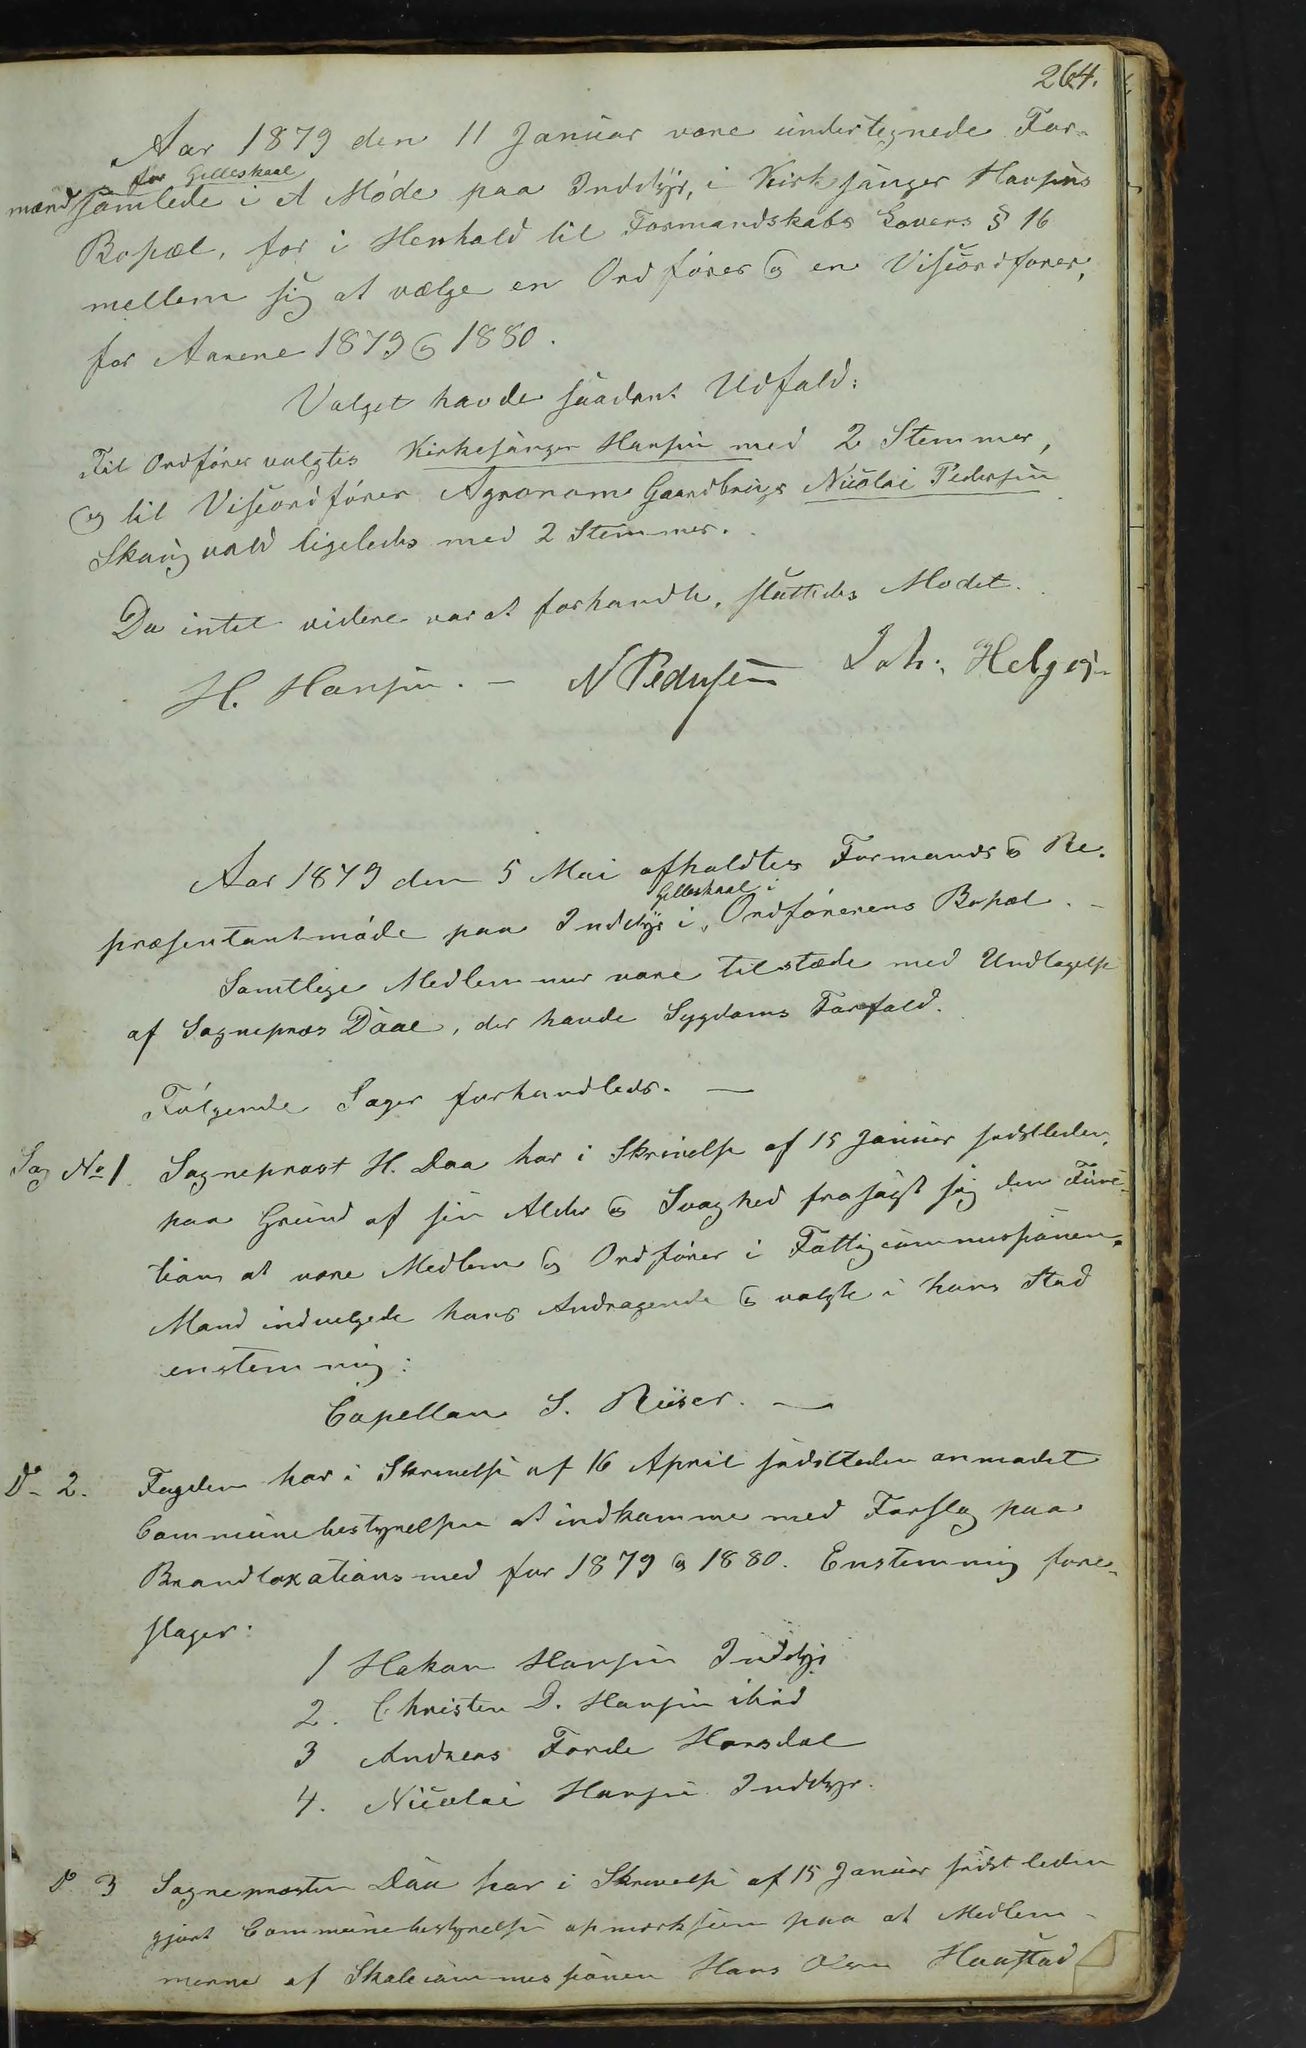 264.
Aar 1879 den 11 Januar vare undertegnede For-
for Gilleskaal
mænd samlede i et Møde paa Indstyr, i Kirksanger Hansens
Bopæl, for i Henhold til Formandskabs Lovens § 16
mellem sig at vælge en Ordfører og en Viseordfører,
for Aarene 1879 og 1880.
Valget havde saadant Udfald:
Til Ordfører valgtes Kirkesanger Hansen med 2 Stemmer,
og til Viseordfører Agronom Gaardbruger Nicolai Pedersen
Skaugvold ligeledes med 2 Stemmer.
Da intet videre var at forhandle, sluttedes Mødet.
H. Hansen. - N Pedersen Joh. Helges
Aar 1879 den 5 Mai afholdtes Formands og Re-
Gilleskaal i
præsentantmøde paa Indstyr i Ordførerens Bopæl. -
Samtlige Medlemmer vare tilstæde med Undtagelse
af Sognepræs Daae, der havde Sygdoms Forfald.
Følgende Sager forhandledes. -
Sag No 1. Sogneprøst H. Daa har i Skrivelse af 15 Januar sidstleden,
paa Grund af sin Alder og Svaghed frasagt sig den Func-
tion at være Medlem og Ordfører i Fattigcommissionen.
Mand indvilgede hans Andragende og valgte i hans Sted
enstemmig:
Capellan S. Riiser. -
Do 2. Fogden har i Skrivelse af 16 April sidstleden anmodet
Communebestyrelsen at indkomme med Forslag paa
Brandtaxationsmed for 1879 og 1880. Enstemmig fore-
slages:
1 Hakon Hansen Indstyr
2. Christen D. Hansen ibid
3 Andreas Forde Horsdal
4. Nicolai Hansen Indstyr.
Do 3 Sogneprosten Daa har i Skrivelse af 15 Januar sidst leden
gjort Communebestyrelsen opmerksom paa at Medlem-
merne af Skolecommissionen Hans Olsen Haustad